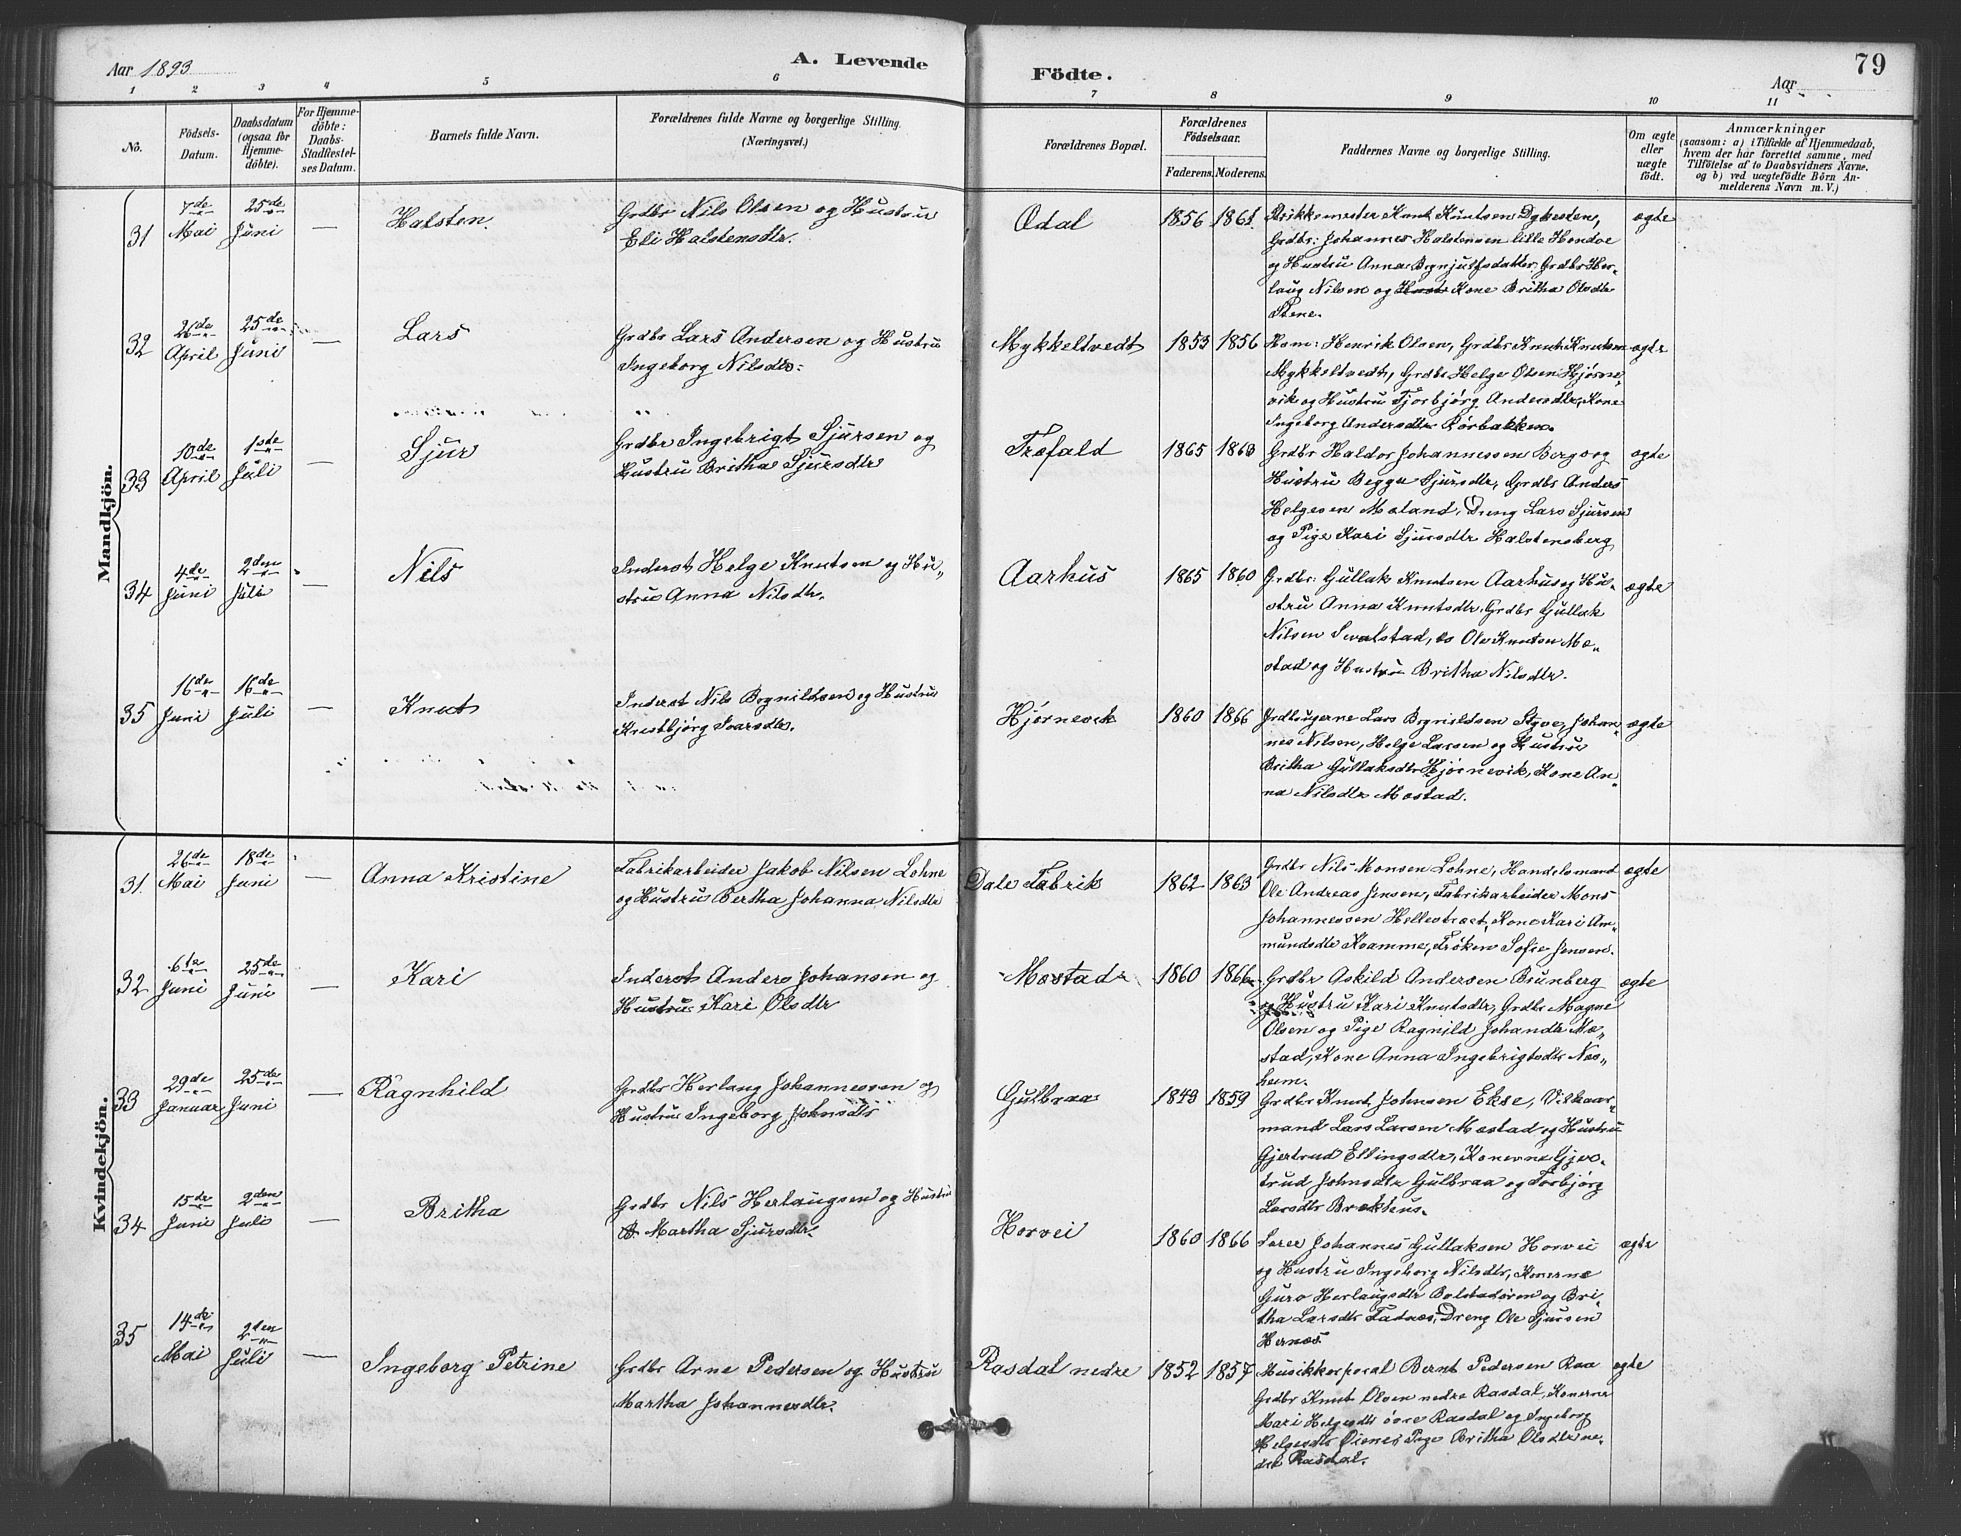 Aar 1893
A. Levende
Födte.
Aar
79
1 2 3 4 5 6 7 8 9 10 11
No.
Födsels-
Datum.
Daabsdatum
(ogsaa for
Hjemme-
döbte).
For Hjemme-
döbte:
Daabs-
Stadfestel-
ses Datum.
Barnets fulde Navn.
Forældrenes fulde Navne og borgerlige Stilling.
(Næringsvei.)
Forældrenes Bopæl.
Forældrenes
Födselsaar.
Faderens. Moderens.
Faddernes Navne og borgerlige Stilling.
Om ægte
eller
uægte
födt.
Anmærkninger
(saasom: a) i Tilfælde af Hjemmedaab,
hvem der har forrettet samme, med
Tilföielse af to Daabsvidners Navne.
og b) ved uægtefödte Börn An-
melderens Navn m. V.)
Mandkjön.
31 7de Mai 25de Juni — Halsten. Grdbr Nils Olsen og Hustru
Eli Halstensdtr.
Ødal 1856 1861. Knut Knutsen Dykesten, ægte
Grdbr: Johannes Halstensen lille Hondve
og Hustru Anna Brynjulfsdatter, Grdbr Her-
laug Nilsen og Kone Britha Olsdtr
Stene.
32 26de April 25de Juni — Lars Grdbr Lars Andersen og Hustru
Ingeborg Nilsdtr.
Mykkeltvedt 1853 1856 Henrik Olsen, Grdbr Knut Knutsen ægte
Mykkeltvedt, Grdbr Helge Olsen Hjørne-
vik og Hustru Torbjørg Andersdtr, Kone
Ingeborg Andersdtr Rörbakken.
33 10de April 1ste Juli — Sjur Grdbr Ingebrigt Sjursen og
Hustru Britha Sjursdtr
Trefald 1865 1863 Grdbr Haldor Johannessen Berge og ægte
Hustru Begga Sjursdtr, Grdbr Anders
Helgesen Moland, Dreng Lars Sjursen
og Pige Kari Sjursdtr Halstensberg
34 4de Juni 2den Juli — Nils Inderst Helge Knutsen og Hu-
stru Anna Nilsdtr.
Aarhus 1865 1860 Grdbr: Gullak Knutsen Aarhus og Hu-
stru Anna Knutsdtr, Grdbr Gullak ægte
Nilsen, do Ole Knutsen Mæ-
stad og Hustru Britha Nilsdtr.
35 16de Juni 16de Juli — Knut Inderst Nils Brgnildsen og Hustru
Kristbjørg Ivarsdtr.
Hjørnevik 1860 1866 Grdbrugerne Lars Brgnildsen Styve, Johan- ægte
nes Nilsen, Helge Larsen og Hustru
Britha Gullaksdtr Hjørnevik, Kone An-
na Nilsdtr Mæstad.
Kvindekjön.
31. 26de Mai 18de Juni — Anna Kristine Fabrikarbeider Jakob Nilsen Lohne
og Hustru Bertha Johanna Nilsdtr
Dale Fabrik 1862 1863 Grdbr Nils Monsen Lohne, Handelsmand ægte
Ole Andreas Jensen, Fabrikarbeider Mons
Johannessen Hellestræt, Kone Kari Am-
mundsdtr Kvamme, Frøken Sofie Jensen.
32 6te Juni 25de Juni — Kari Inderst Anders Johansen og
Hustru Kari Olsdtr
Mæstad 1860 1866 Grdbr Askild Andersen Brunberg ægte
og Hustru Kari Knutsdtr, Grdbr Magne
Olsen og Pige Ragnild Johansdtr Mæ-
stad, Kone Anna Ingebrigtsdtr Næs-
heim.
33 29de Januar 25de Juni — Ragnhild Grdbr Herlaug Johannessen og
Hustru Ingeborg Johnsdtr
Gulbraa 1849 1859 Grdbr Knut Johnsen Ekse, Vilkaar-
mand Lars Larsen Mæstad og Hustru
Gjertrud Ellingsdtr, Konerne Gjer-
trud Johnsdtr Gulbraa og Torbjørg
Larsdtr Brekhus.
34 15de Juni 2den Juli — Britha Grdbr Nils Herlaugsen og Hustru
Martha Sjursdtr.
Horvei 1860 1866 Lærer Johannes Gullaksen Horvei ægte
og Hustru Ingeborg Nilsdtr, Konerne
Guro Herlaugsdtr Bolstadøren og Bri-
tha Larsdtr Fadnes, Dreng Ole Sjursen
Hernæs.
35 14de Mai 2den Juli — Ingeborg Petrine Grdbr Arne Pedersen og Hustru
Martha Johannesdtr.
Rasdal nedre 1852 1857 Musikkorporal Bernt Pedersen Raa ægte
Grdbr Knut Olsen nedre Rasdal, Konerne
Mari Helgesdtr øvre Rasdal og Ingeborg
Helgesdtr Øienes, Pige Britha Olsdtr ne-
dre Rasdal.